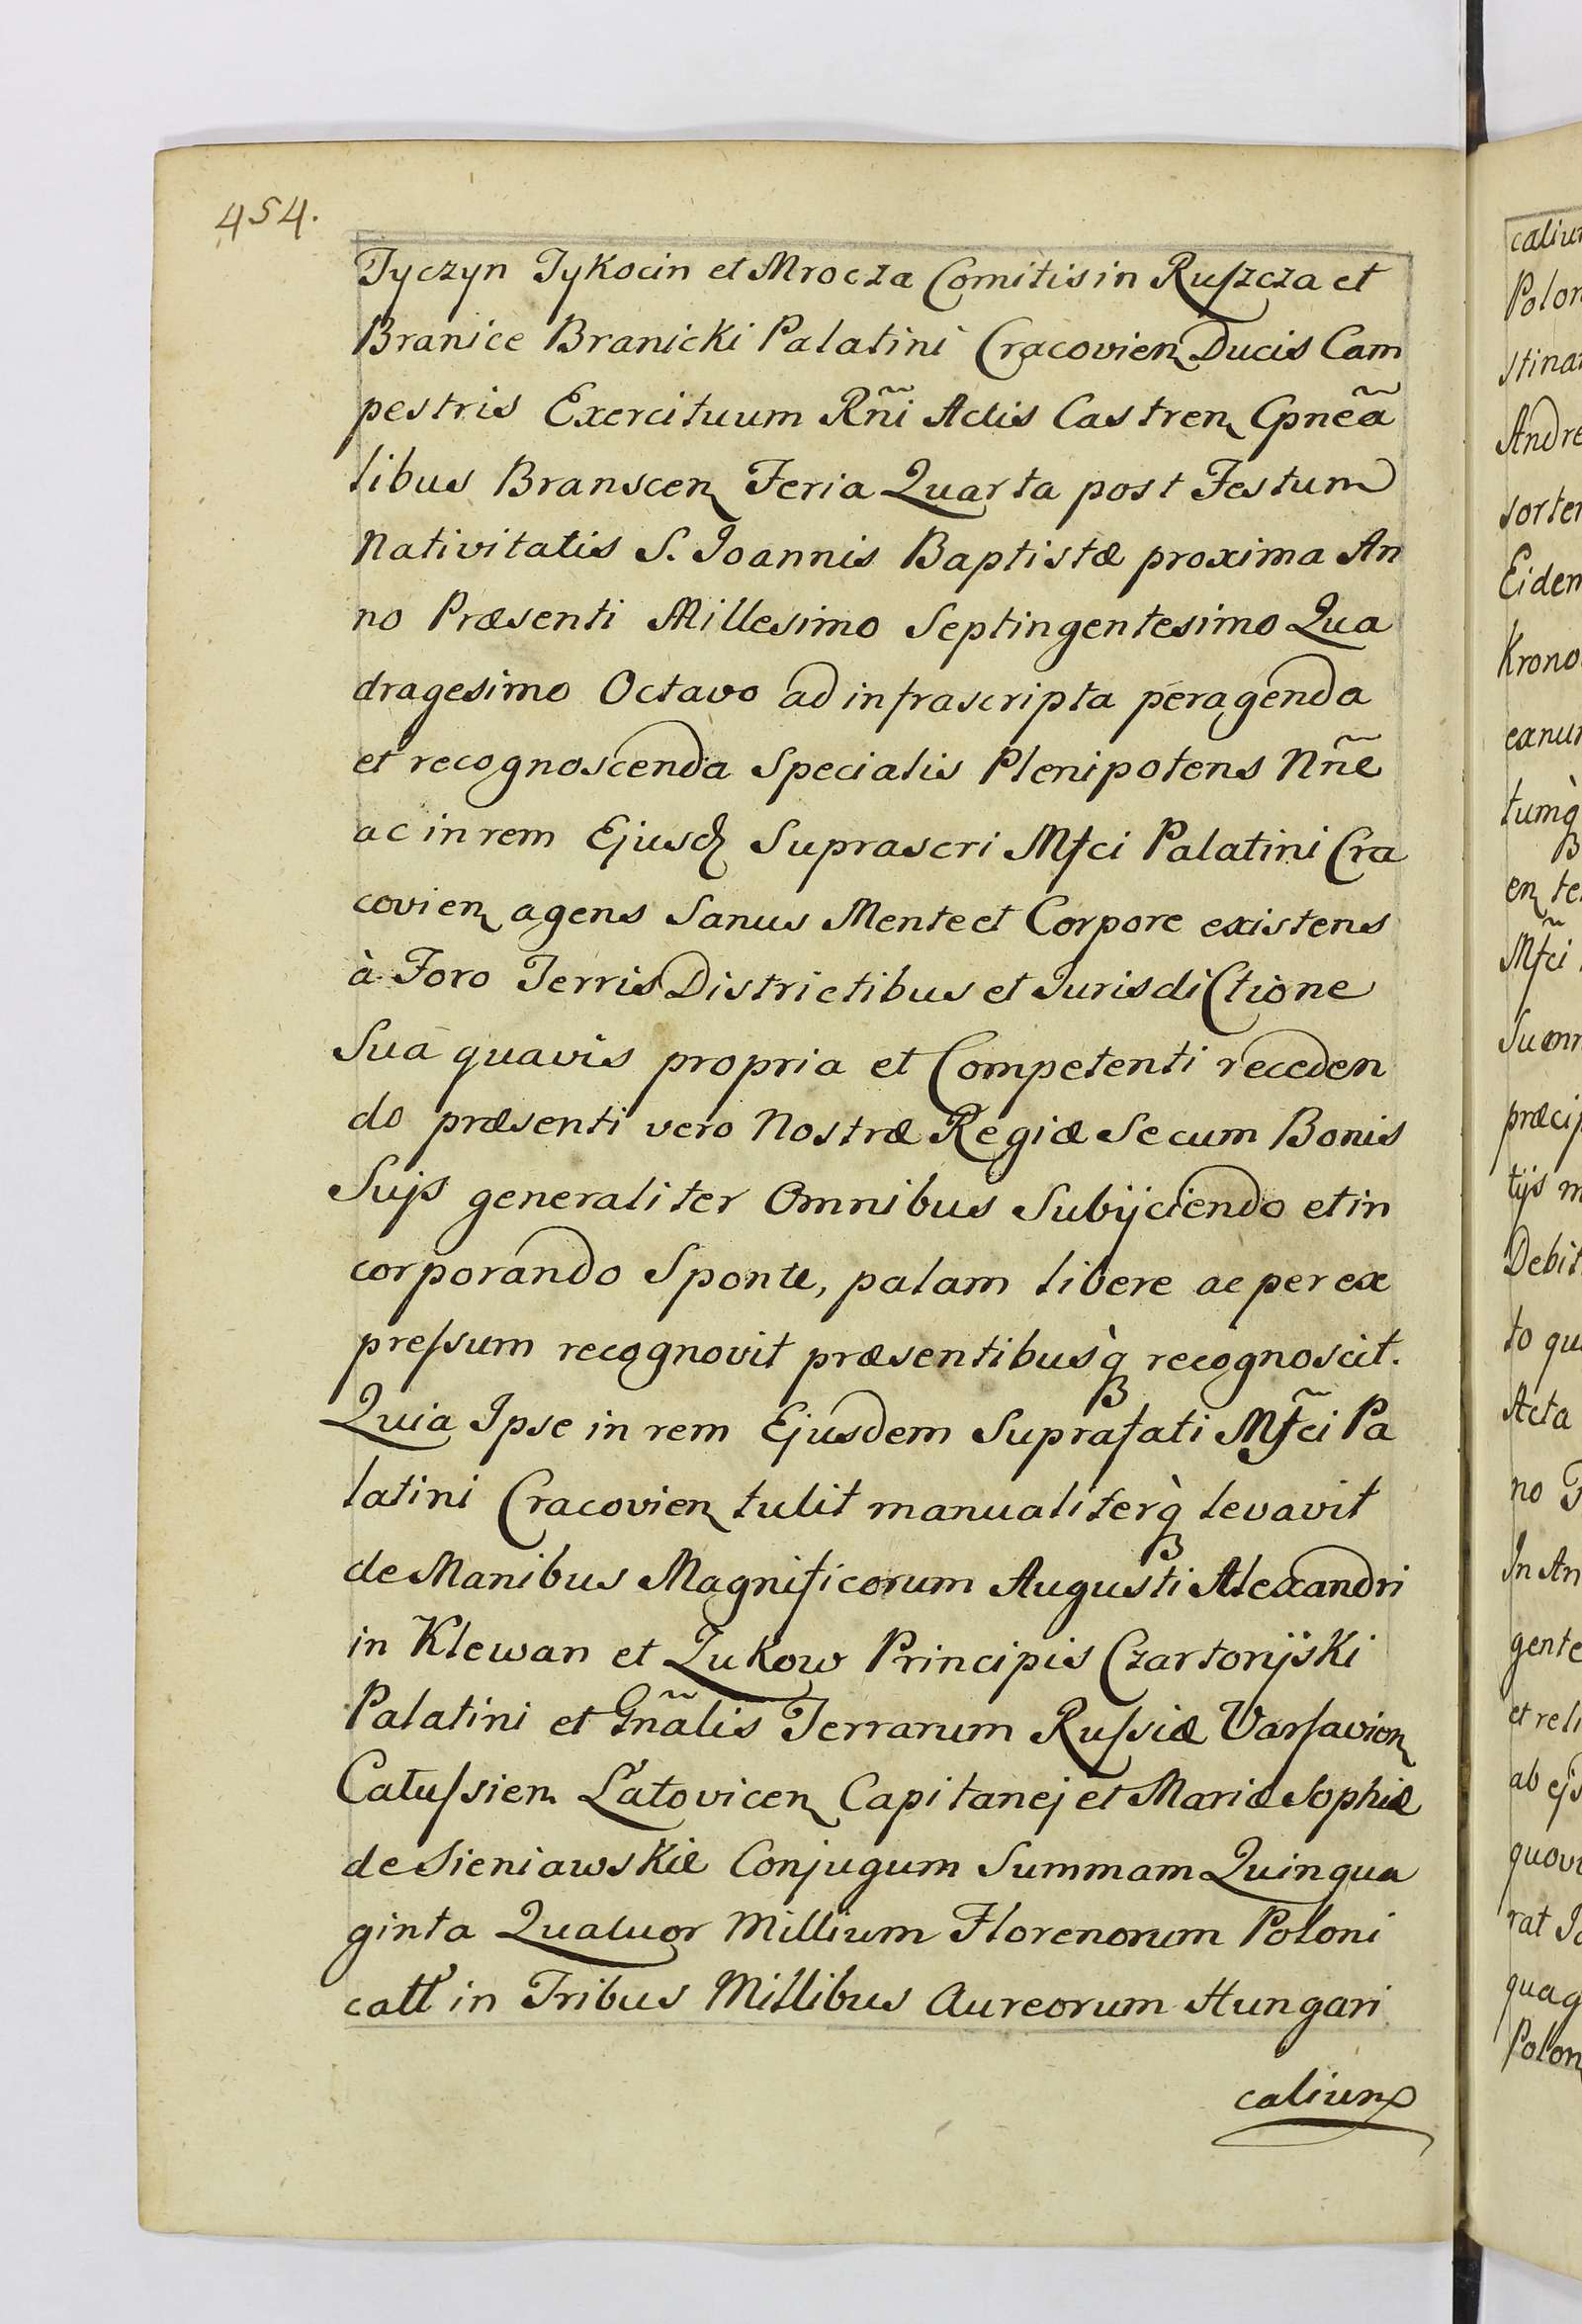 454.
Tyczyn Tykocin et Mrocza Comitis in Ruszcza et
Branice Branicki Palatini Cracovien Ducis Cam
pestris Exercituum Rñi Actis Castren Cpneã
libus Branscen Feria Quarta post Festum
Nativitatis S. Joannis Baptistæ proxima An
no Præsenti Millesimo Septingentesimo Qua
dragesimo Octavo ad infrascripta peragenda
et recognoscenda Specialis Plenipotens Nñe
ac in rem Ejusd Suprascri Mfci Palatini Cra
covien agens Sanus Mente et Corpore existens
à Foro Terris Districtibus et Jurisdictione
Sua quavis propria et Competenti receden
do præsenti vero Nostræ Regiæ Se cum Bonis
Suis generaliter Omnibus Subijciendo et in
corporando Sponte, palam libere ac per ex
pressum recognovit præsentibusq̀ recognoscit.
Quia Ipse in rem Ejusdem Suprafati Mfc̃i Pa
latini Cracovien tulit manualiterq̀ levavit
de Manibus Magnificorum Augusti Alexandri
in Klewan et Zukow Principis Czartoryiski
Palatini et Gñalis Terrarum Russiæ Varsavien
Calussien Latovicen Capitanej et Mariæ Sophiæ
de Sieniawskie Conjugum Summam Quinqua
ginta Quatuor Millium Florenorum Poloni
call in Tribus Millibus Aureorum Hungari
calium
calium
Polon
stina
Andre
sorte
Eidem
Krono
eanu
tumq̀
en te
Mfc̃i
Sum
præci
tijs m
Debit
to qu
Acta
no F
In An
gente
et reli
ab ejs
quov
rat J
quag
Polon